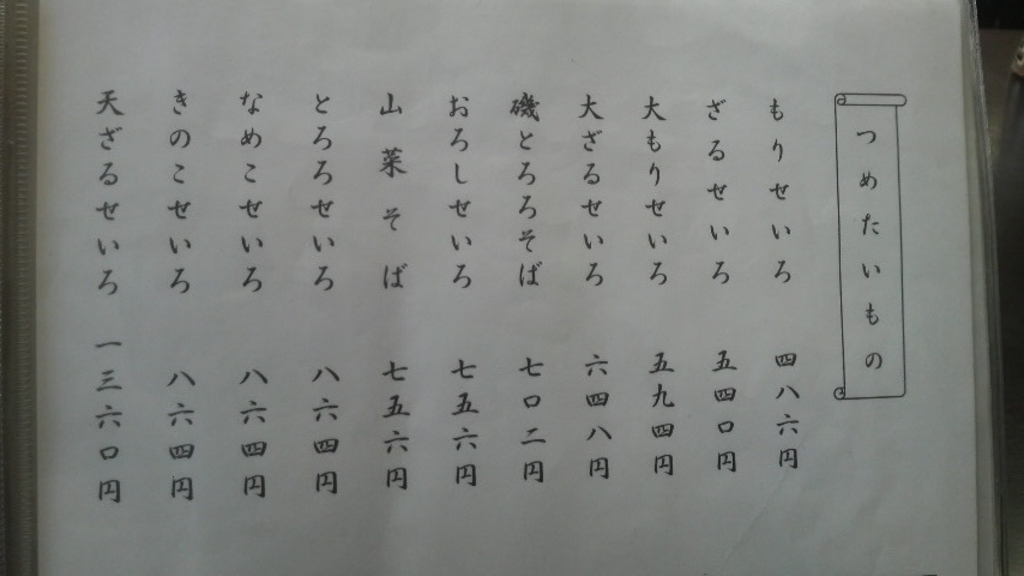 つめたいもの
もりせいろ 四八六円
ざるせいろ 五四〇円
大もりせいろ 五九四円
大ざるせいろ 六四八円
磯とろろそば 七〇二円
おろしせいろ 七五六円
山菜そば 七五六円
とろろせいろ 八六四円
なめこせいろ 八六四円
きのこせいろ 八六四円
天ざるせいろ 一三六〇円